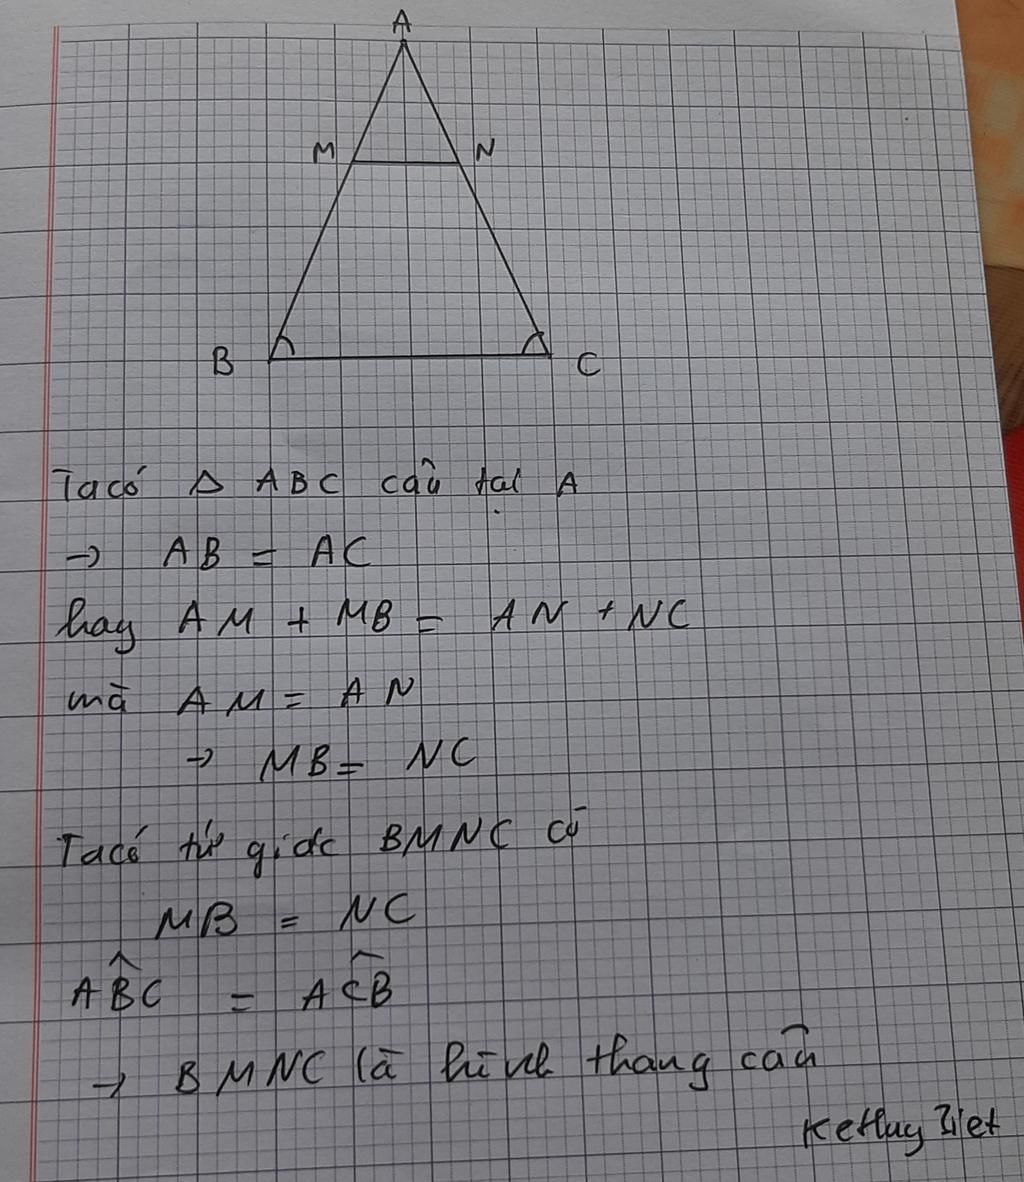 A
M N
B C
Ta có Δ ABC cân tại A
→ AB = AC
hay AM + MB = AN + NC
mà AM = AN
→ MB = NC
Ta có tứ giác BMNC có
MB = NC
AB̂C = AĈB
→ BMNC là hình thang cân